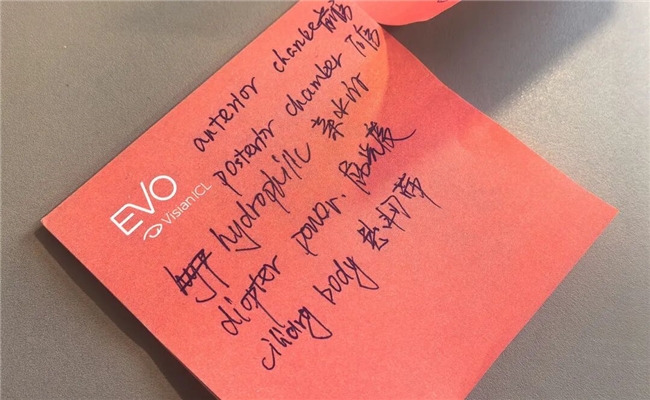 EVO
Visian ICL
anterior chamber 前房
posterir chamber 房
hydrophilic 亲水
diopter power. 屈光度
ciliary body